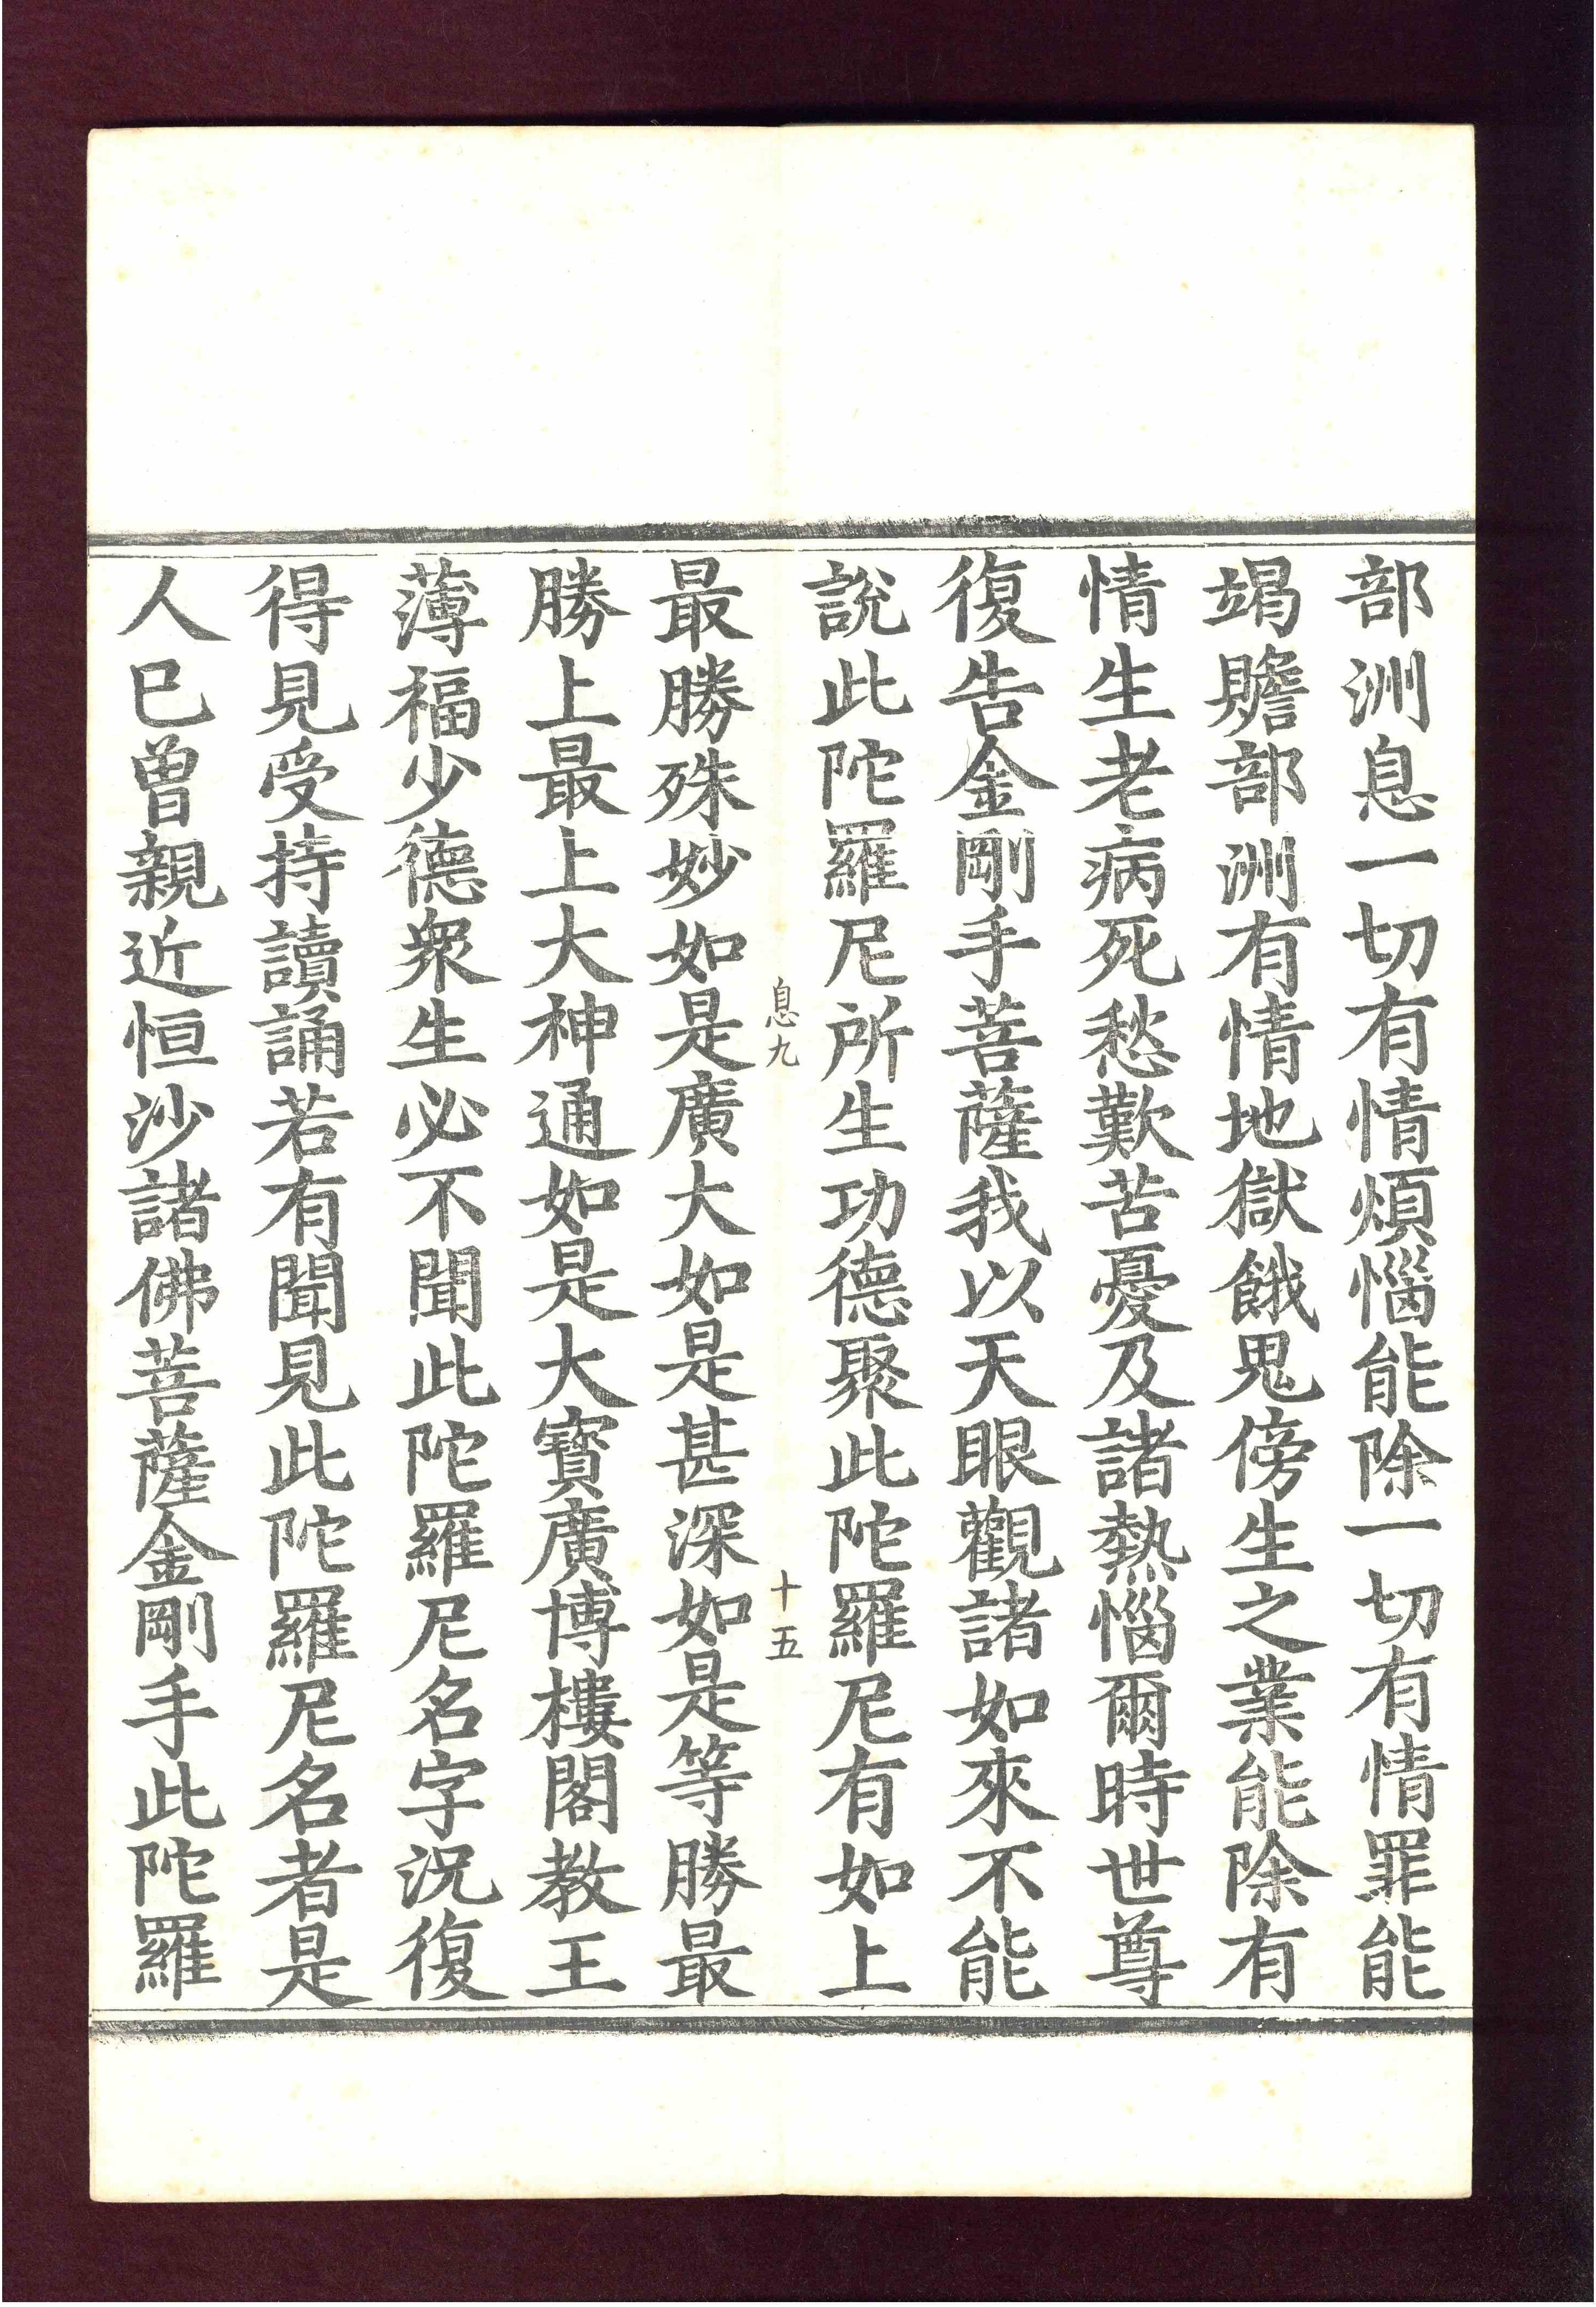 部洲息一切有情煩惱能除一切有情罪能
竭贍部洲有情地獄餓鬼傍生之業能除有
情生老病死愁歎苦憂及諸熱惱爾時世尊
復告金剛手菩薩我以天眼觀諸如來不能
說此陀羅尼所生功德聚此陀羅尼有如上
息九
十五
最勝殊妙如是廣大如是甚深如是等勝最
勝上最上大神通如是大寶廣博樓閣教王
薄福少德衆生必不聞此陀羅尼名字況復
得見受持讀誦若有聞見此陀羅尼名者是
人已曾親近恒沙諸佛菩薩金剛手此陀羅